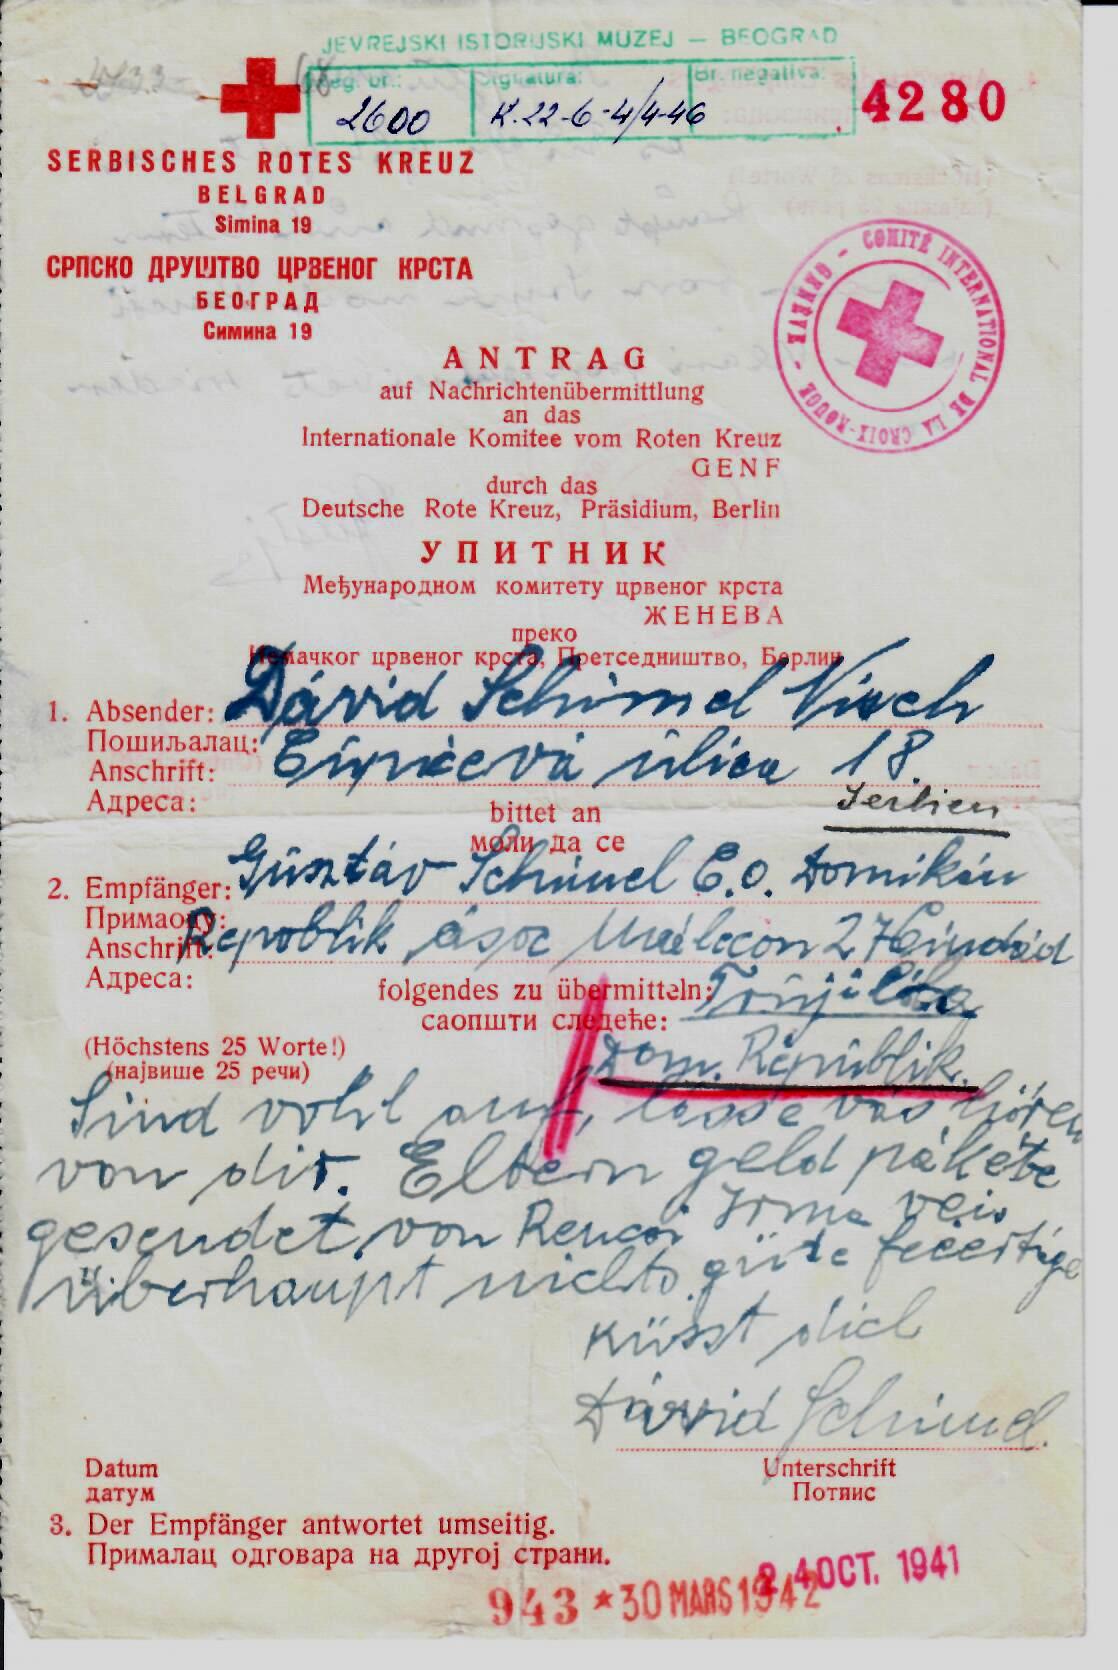 JEVREJSKI ISTORIJSKI MUZEJ — BEOGRAD
Reg. br.: Signatura: Br. negativa:
2600 K.22-6-4/4-46
4280
SERBISCHES ROTES KREUZ
BELGRAD
Simina 19
СРПСКО ДРУШТВО ЦРВЕНОГ КРСТА
БЕОГРАД
Симина 19
COMITÉ INTERNATIONAL DE LA CROIX-ROUGE
ANTRAG
auf Nachrichtenübermittlung
an das
Internationale Komitee vom Roten Kreuz
GENF
durch das
Deutsche Rote Kreuz, Präsidium, Berlin
УПИТНИК
Међународном комитету црвеног крста
ЖЕНЕВА
преко
Немачког црвеног крста, Претседништво, Берлин
1. Absender: Dávid Schimel
Пошиљалац:
Anschrift: ulica 18.
Адреса:
Serbien
bittet an
моли да се
2. Empfänger: Gusztáv Schimel C.O. Domikán
Примаоцу:
Anschrift: Republik
Адреса:
folgendes zu übermitteln:
саопшти следеће:
Dom. Republik.
(Höchstens 25 Worte!)
(највише 25 речи)
Sind vohl auf, lasse vas hören
von dir. Eltern geld pakete
gesendet, von Irma veis
überhaupt nichts.
küsst dich
Dávid Schimel.
Datum
датум
Unterschrift
Потпис
3. Der Empfänger antwortet umseitig.
Прималац одговара на другој страни.
943 * 30 MARS 1942
24 OCT. 1941